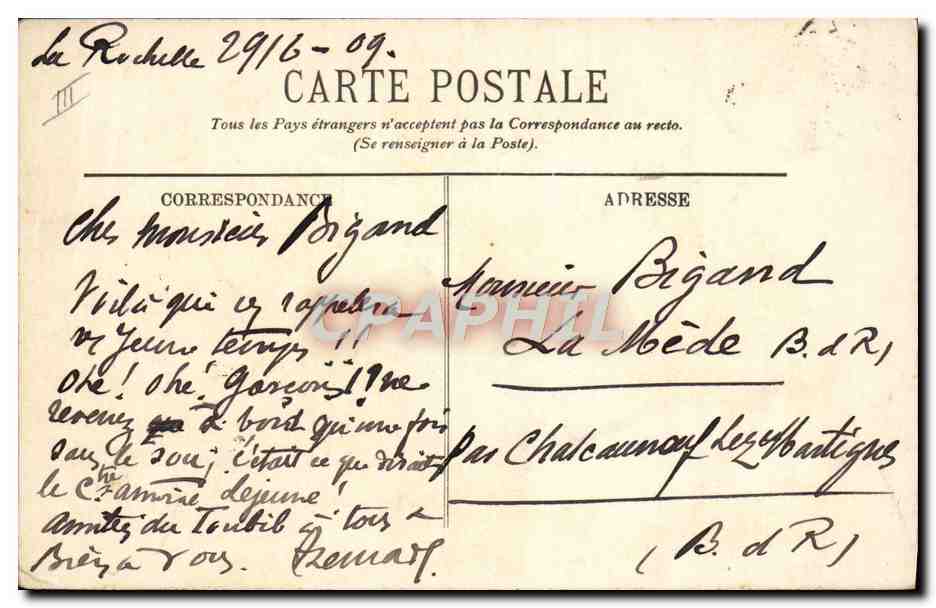 La Rochelle 29/6-09.
III
CARTE POSTALE
Tous les Pays étrangers n'acceptent pas la Correspondance au recto.
(Se renseigner à la Poste).
CORRESPONDANCE
Cher monsieur Bigand
Voilà qui rappelera
Jeune temps !!
Ohé! Ohé! Garçons!! ne
revenez à bord qu'une fois
c'était ce que disait
le déjeuné!
amitiés du Toubib à tous
Bien à vous.
ADRESSE
Monsieur Bigand
La Mède B. d R)
par Chateauneuf Lez Martigues
(B. d R)
CPAPHIL